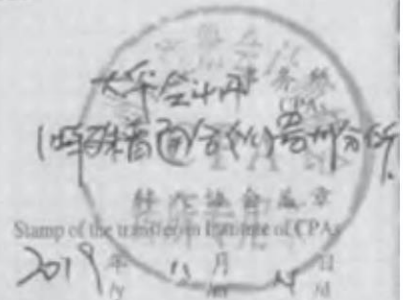 大华会计师事务所
CPAs
(特殊普通合伙)贵州分所
转入协会盖章
Stamp of the transfer-in Institute of CPAs
2019年 11月 日
/y /m /d